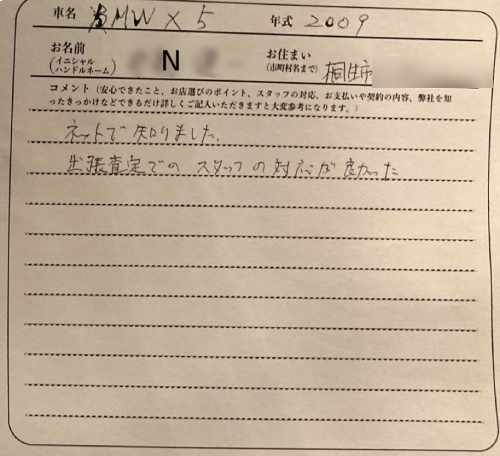 車名 BMW X5 年式 2009
お名前 (イニシャル ハンドルネーム) N お住まい (市町村名まで) 桐生市
コメント（安心できたこと、お店選びのポイント、スタッフの対応、お支払いや契約の内容、弊社を知
ったきっかけなどできるだけ詳しくご記入いただきますと大変参考になります。）
ネットで知りました。
出張査定でのスタッフの対応が良かった